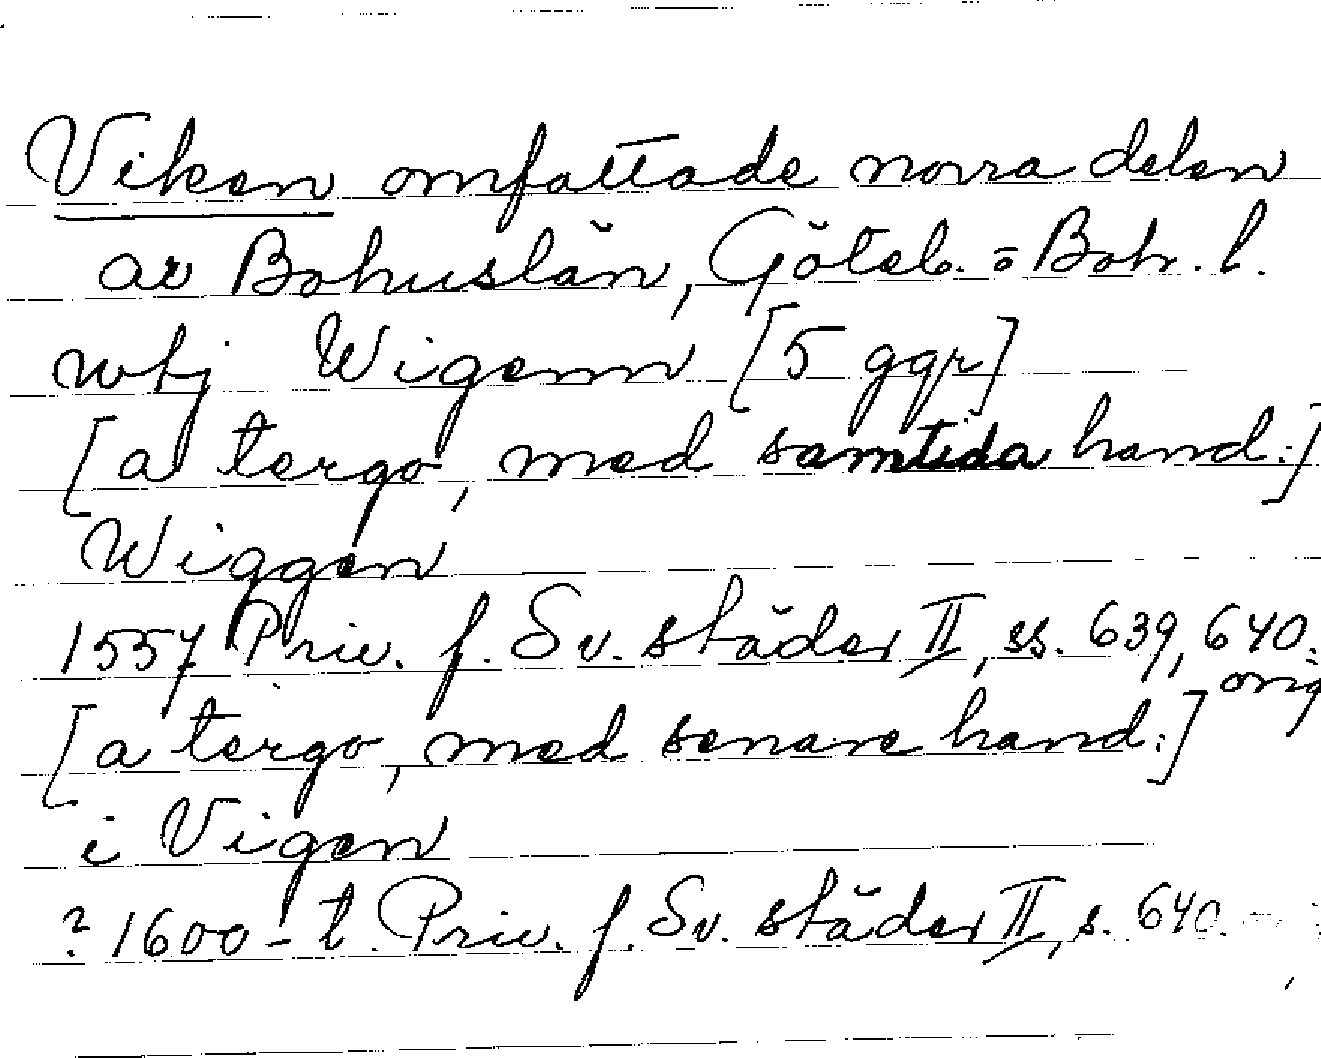 Viken omfattade norra delen
av Bohuslän, Göteb. o Boh. l.
utj Wigenn [5 ggr]
[a tergo, med samtida hand:]
Wiggen
1557 Priv. f. Sv. städer II, ss. 639, 640.
orig
[a tergo, med senare hand:]
i Vigen
? 1600-t. Priv. f. Sv. städer II, s. 640.